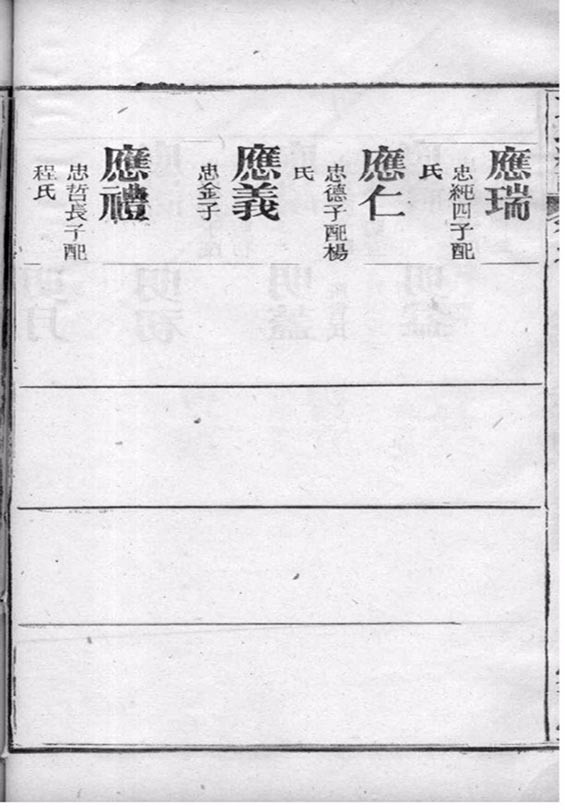 應瑞
忠純四子配
氏
應仁
忠德子配楊
氏
應義
忠金子
應禮
忠哲長子配
程氏